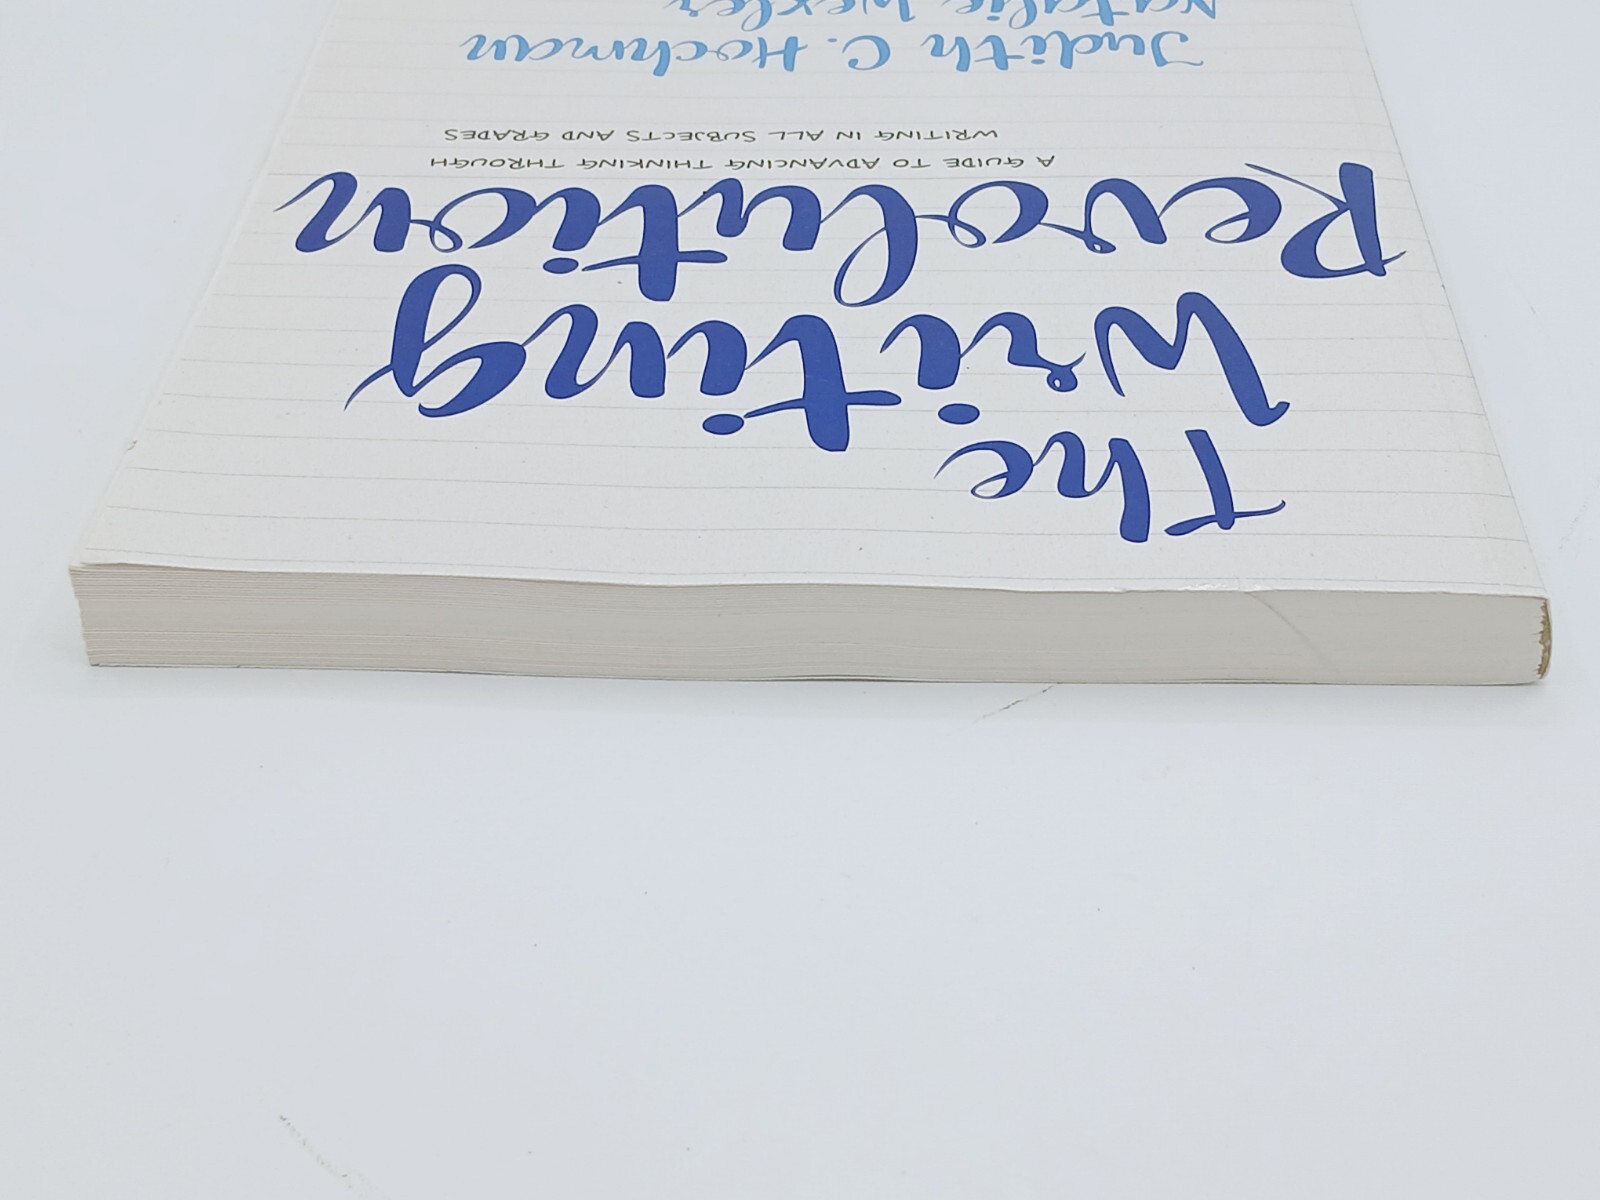 The
Writing
Revolution
A GUIDE TO ADVANCING THINKING THROUGH
WRITING IN ALL SUBJECTS AND GRADES
Judith C. Hochman
Natalie Wexler